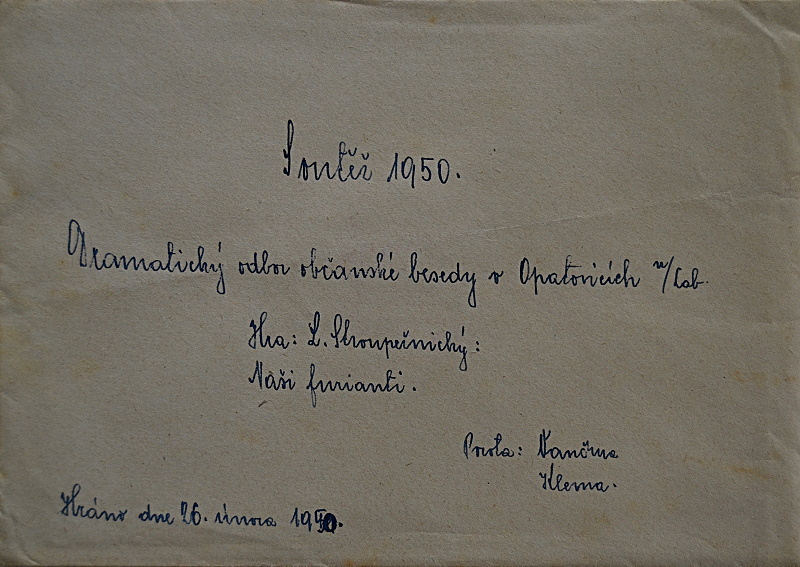 Soutěž 1950.
Dramatický odbor občanské besedy v Opatovicích n/Lab.
Hra: L. Stroupežnický:
Naši furianti.
Porota: Vančura
Klema.
Hráno dne 26. února 1950.